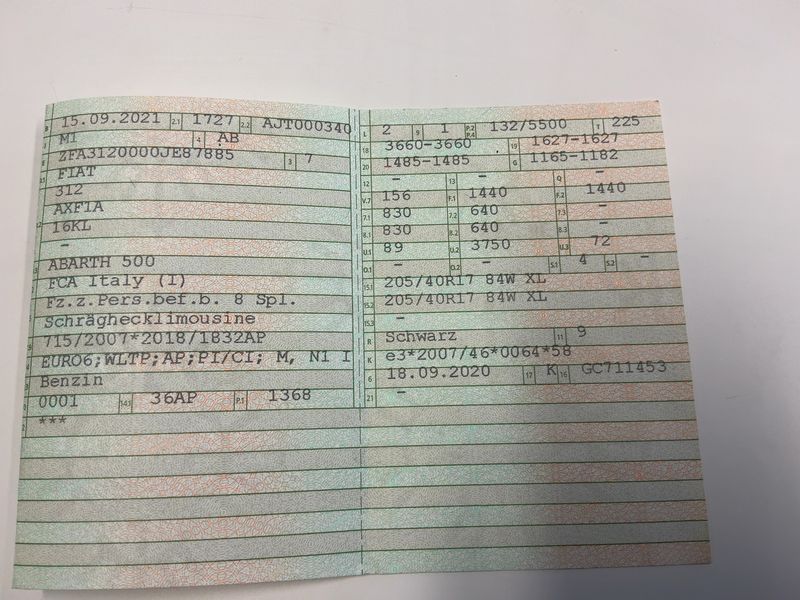 B 15.09.2021 2.1 1727 2.2 AJT000340
J M1 4 AB
E ZFA3120000JE87885 3 7
FIAT
312
AXF1A
16KL
–
ABARTH 500
FCA Italy (I)
Fz.z.Pers.bef.b. 8 Spl.
Schräghecklimousine
715/2007*2018/1832AP
EURO6;WLTP;AP;PI/CI; M, N1 I
Benzin
0001 14.1 36AP P.1 1368
***
L 2 9 1 P.2 P.4 132/5500 T 225
18 3660-3660 19 1627-1627
20 1485-1485 G 1165-1182
12 – 13 – Q –
V.7 156 F.1 1440 F.2 1440
7.1 830 7.2 640 7.3 –
8.1 830 8.2 640 8.3 –
U.1 89 U.2 3750 U.3 72
O.1 – O.2 – S.1 4 S.2 –
15.1 205/40R17 84W XL
15.2 205/40R17 84W XL
15.3 –
R Schwarz 11 9
K e3*2007/46*0064*58
6 18.09.2020 17 K 16 GC711453
21 –